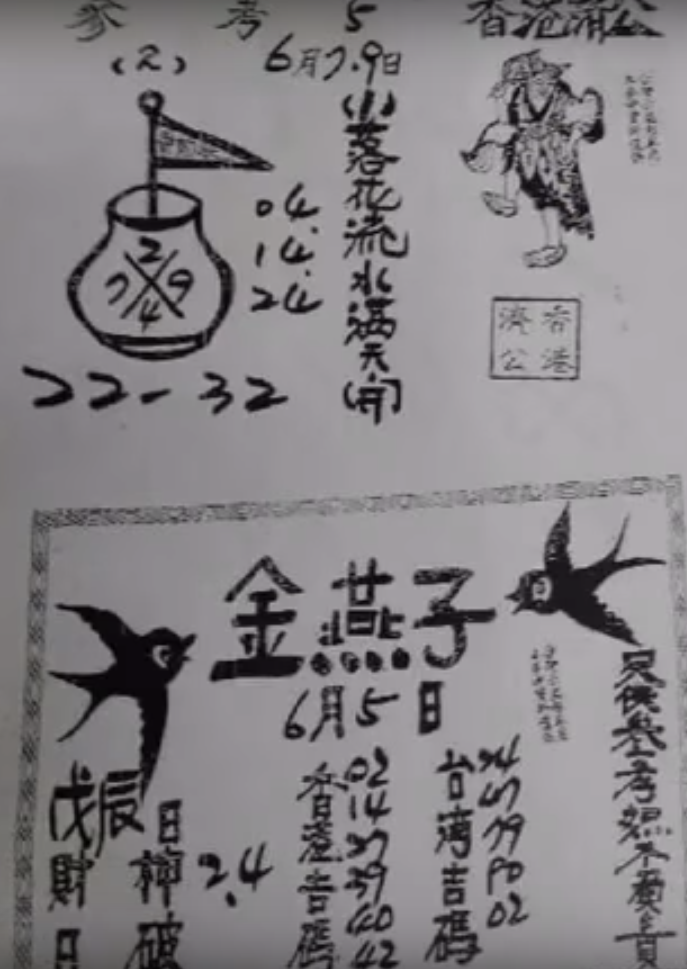 參考 5
香港濟公
(2)
6月7.9日
(小)落花流水滿天(開)
04.
14.
24
2
7 9
4
22-32
香港
濟公
金燕子
6月5日
只供參考恕不負責
台灣吉碼
47
79
80
02
香港吉碼
02
14
37
39
40
42
戊辰日
財
神破
2.4